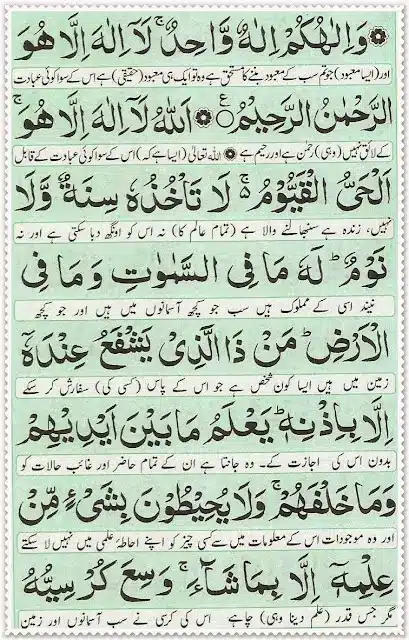 وَاِلٰهُكُمْ اِلٰهٌ وَّاحِدٌ ۚ لَآ اِلٰهَ اِلَّا هُوَ
اور (ایسا معبود) جو تم سب کے معبود بننے کا مستحق ہے وہ تو ایک ہی معبود (حقیقی) ہے اس کے سوا کوئی عبادت
الرَّحْمٰنُ الرَّحِیْمُ ۞ اَللّٰهُ لَآ اِلٰهَ اِلَّا هُوَ ۚ
کے لائق نہیں (وہی) رحمٰن ہے اور رحیم ہے ۞ اللہ تعالیٰ (ایسا ہے کہ) اس کے سوا کوئی عبادت کے قابل
اَلْحَیُّ الْقَیُّوْمُ ۚ۬ لَا تَاْخُذُهٗ سِنَةٌ وَّلَا
نہیں، زندہ ہے سنبھالنے والا ہے (تمام عالم کا) نہ اس کو اونگھ دبا سکتی ہے اور نہ
نَوْمٌ ؕ لَهٗ مَا فِی السَّمٰوٰتِ وَ مَا فِی
نیند اسی کے مملوک ہیں سب جو کچھ آسمانوں میں ہیں اور جو کچھ
الْاَرْضِ ؕ مَنْ ذَا الَّذِیْ یَشْفَعُ عِنْدَهٗۤ
زمین میں ہیں ایسا کون شخص ہے جو اس کے پاس (کسی کی) سفارش کر سکے
اِلَّا بِاِذْنِهٖ ؕ یَعْلَمُ مَا بَیْنَ اَیْدِیْهِمْ
بدون اس کی اجازت کے۔ وہ جانتا ہے ان کے تمام حاضر اور غائب حالات کو
وَمَا خَلْفَهُمْ ۚ وَلَا یُحِیْطُوْنَ بِشَیْءٍ مِّنْ
اور وہ موجودات اس کے معلومات میں سے کسی چیز کو اپنے احاطۂ علمی میں نہیں لا سکتے
عِلْمِهٖۤ اِلَّا بِمَا شَآءَ ۚ وَسِعَ كُرْسِیُّهُ
مگر جس قدر (علم دینا وہی) چاہے اس کی کرسی نے سب آسمانوں اور زمین